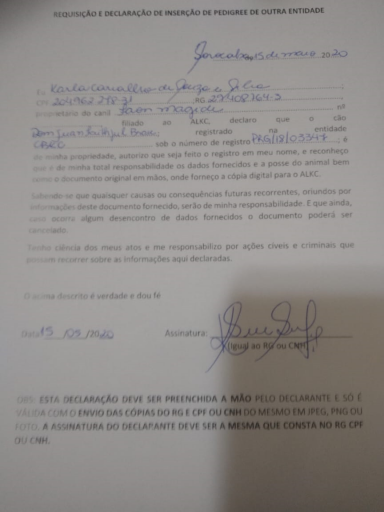 REQUISIÇÃO E DECLARAÇÃO DE INSERÇÃO DE PEDIGREE DE OUTRA ENTIDADE
Sorocaba, 15 de maio 2020
Eu Karla Carvalho de Souza e Silva
CPF RG
proprietária do canil nº
filiado ao ALKC, declaro que o cão
Dom Juan registrado na entidade
CBKC sob o número de registro é
de minha propriedade, autorizo que seja feito o registro em meu nome, e reconheço
que é de minha total responsabilidade os dados fornecidos e a posse do animal bem
como o documento original em mãos, onde forneço a cópia digital para o ALKC.
Sabendo-se que quaisquer causas ou consequências futuras recorrentes, oriundos por
informações deste documento fornecido, serão de minha responsabilidade. E que ainda,
caso ocorra algum desencontro de dados fornecidos o documento poderá ser
cancelado.
Tenho ciência dos meus atos e me responsabilizo por ações cíveis e criminais que
possam recorrer sobre as informações aqui declaradas.
O acima descrito é verdade e dou fé
Data 15 /05 /2020 Assinatura:
(Igual ao RG ou CNH)
OBS: ESTA DECLARAÇÃO DEVE SER PREENCHIDA A MÃO PELO DECLARANTE E SÓ É
VÁLIDA COM O ENVIO DAS CÓPIAS DO RG E CPF OU CNH DO MESMO EM JPEG, PNG OU
FOTO. A ASSINATURA DO DECLARANTE DEVE SER A MESMA QUE CONSTA NO RG CPF
OU CNH.